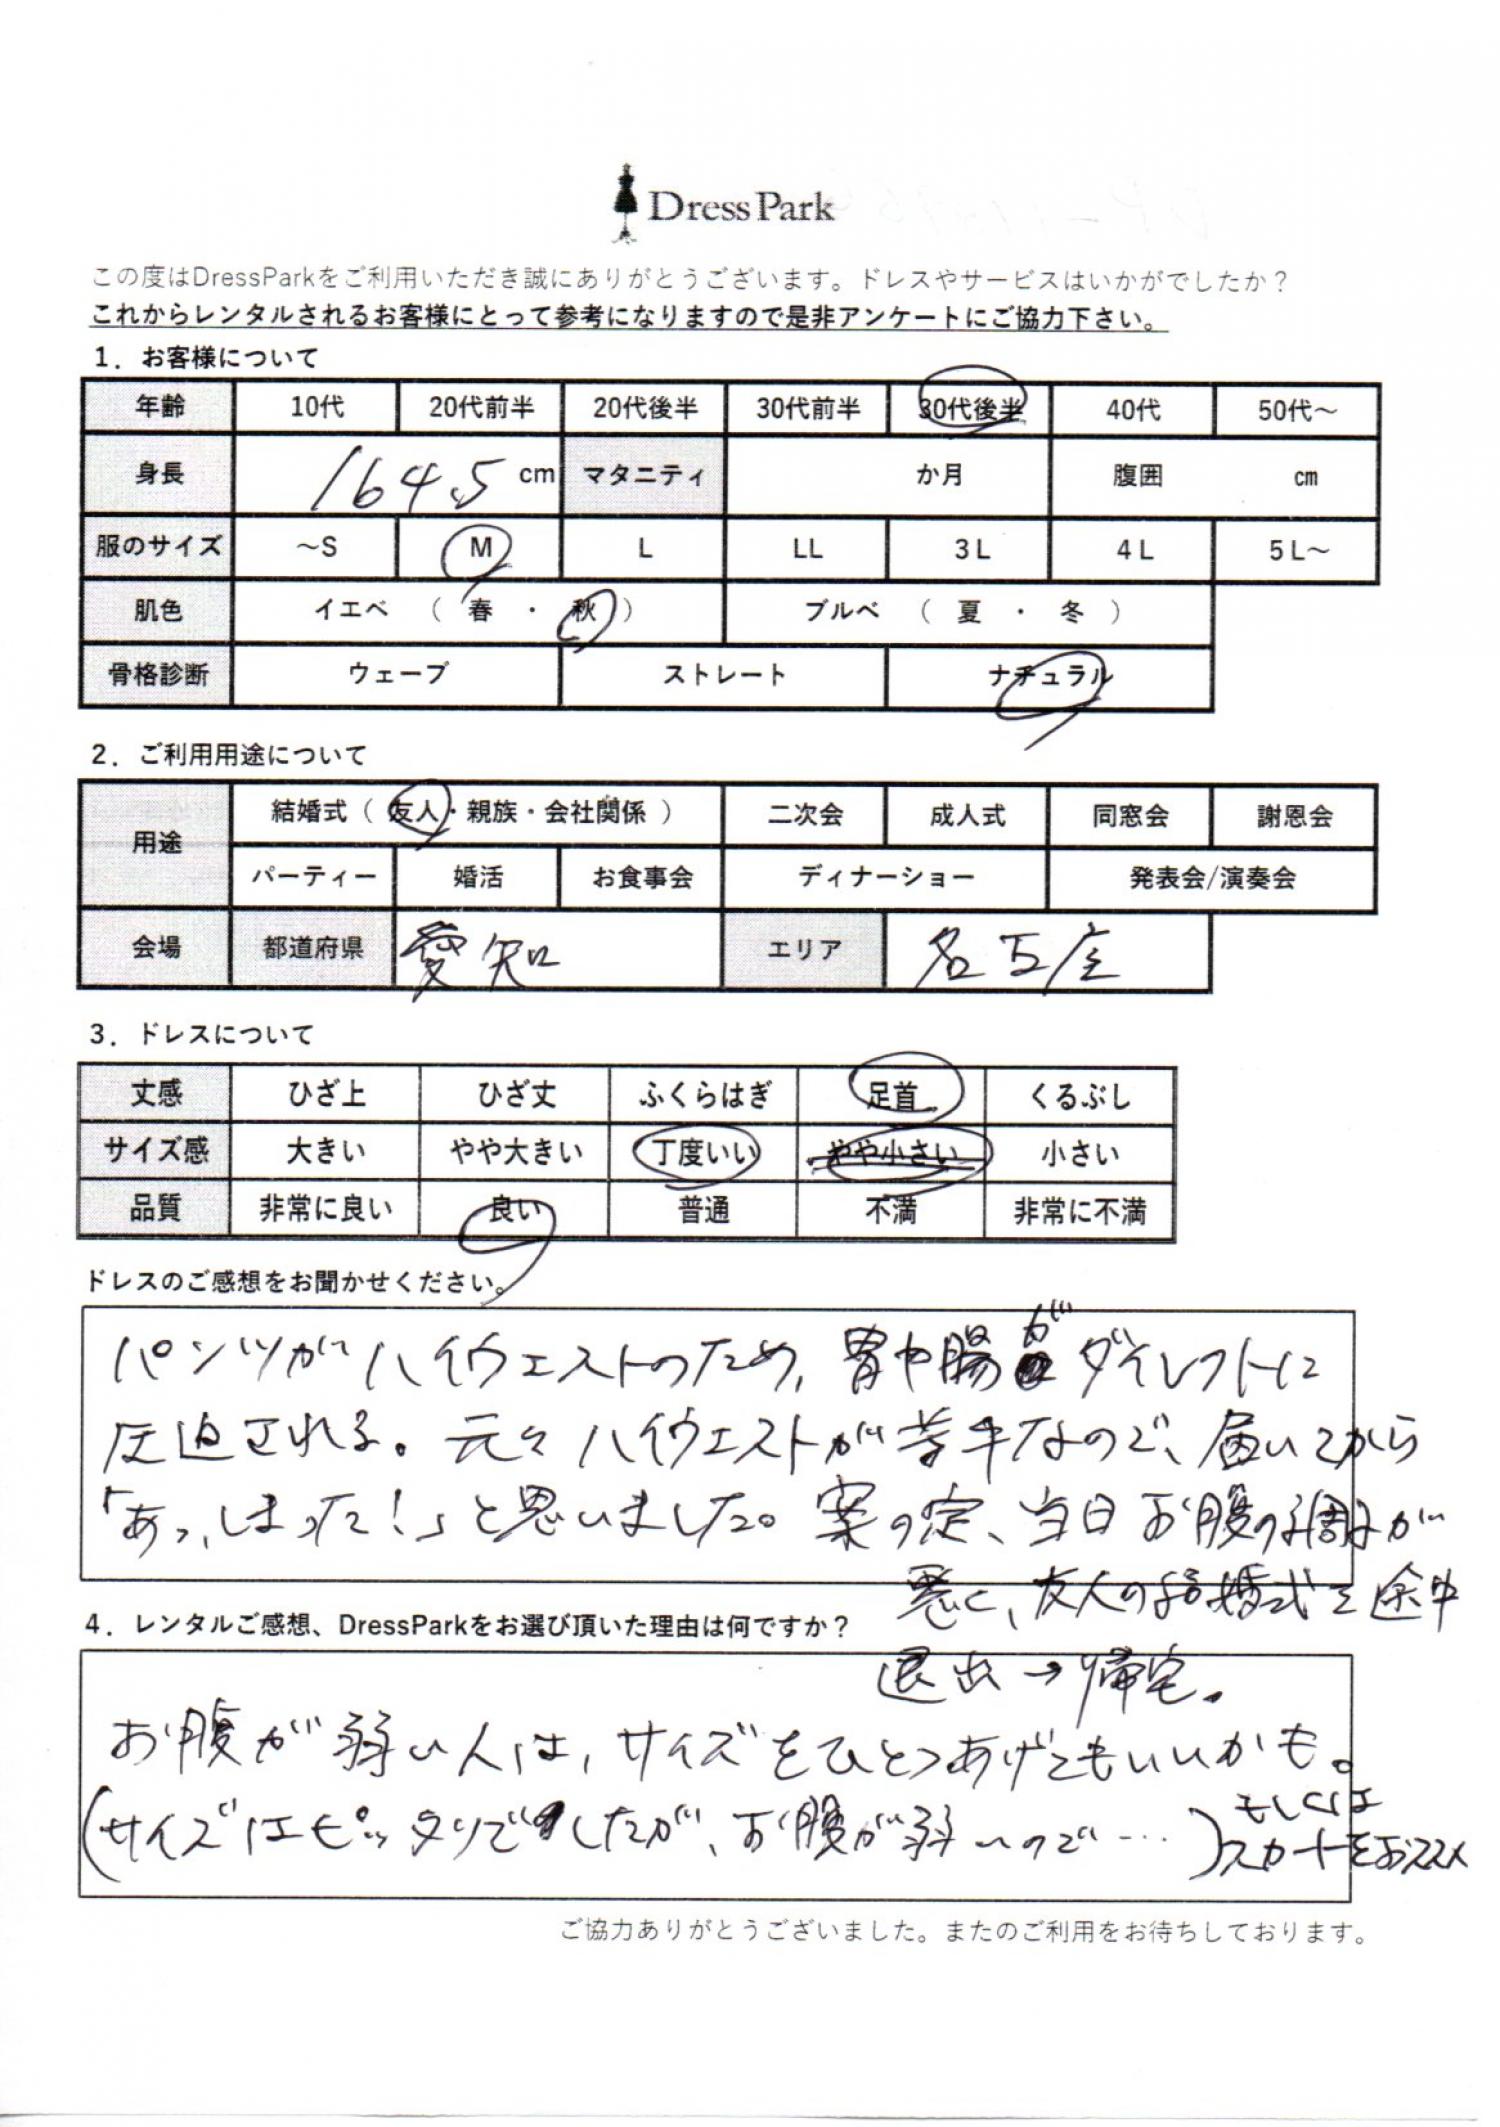 DressPark
この度はDressParkをご利用いただき誠にありがとうございます。ドレスやサービスはいかがでしたか？
これからレンタルされるお客様にとって参考になりますので是非アンケートにご協力下さい。
1．お客様について
年齢 10代 20代前半 20代後半 30代前半 30代後半 40代 50代～
身長 164.5 cm マタニティ か月 腹囲 cm
服のサイズ ～S M L LL 3L 4L 5L～
肌色 イエベ （ 春 ・ 秋 ） ブルベ （ 夏 ・ 冬 ）
骨格診断 ウェーブ ストレート ナチュラル
2．ご利用用途について
用途 結婚式（ 友人・親族・会社関係 ） 二次会 成人式 同窓会 謝恩会
パーティー 婚活 お食事会 ディナーショー 発表会/演奏会
会場 都道府県 愛知 エリア 名古屋
3．ドレスについて
丈感 ひざ上 ひざ丈 ふくらはぎ 足首 くるぶし
サイズ感 大きい やや大きい 丁度いい やや小さい 小さい
品質 非常に良い 良い 普通 不満 非常に不満
ドレスのご感想をお聞かせください。
パンツがハイウエストのため、胃や腸がダイレクトに
圧迫される。元々ハイウエストが苦手なので、届いてから
「あっ、しまった！」と思いました。案の定、当日お腹の調子が
悪く、友人の結婚式を途中
退出→帰宅。
4．レンタルご感想、DressParkをお選び頂いた理由は何ですか？
お腹が弱い人は、サイズをひとつあげてもいいかも。
（サイズはピッタリでしたが、お腹が弱いので…）もしくは
スカートをおススメ
ご協力ありがとうございました。またのご利用をお待ちしております。